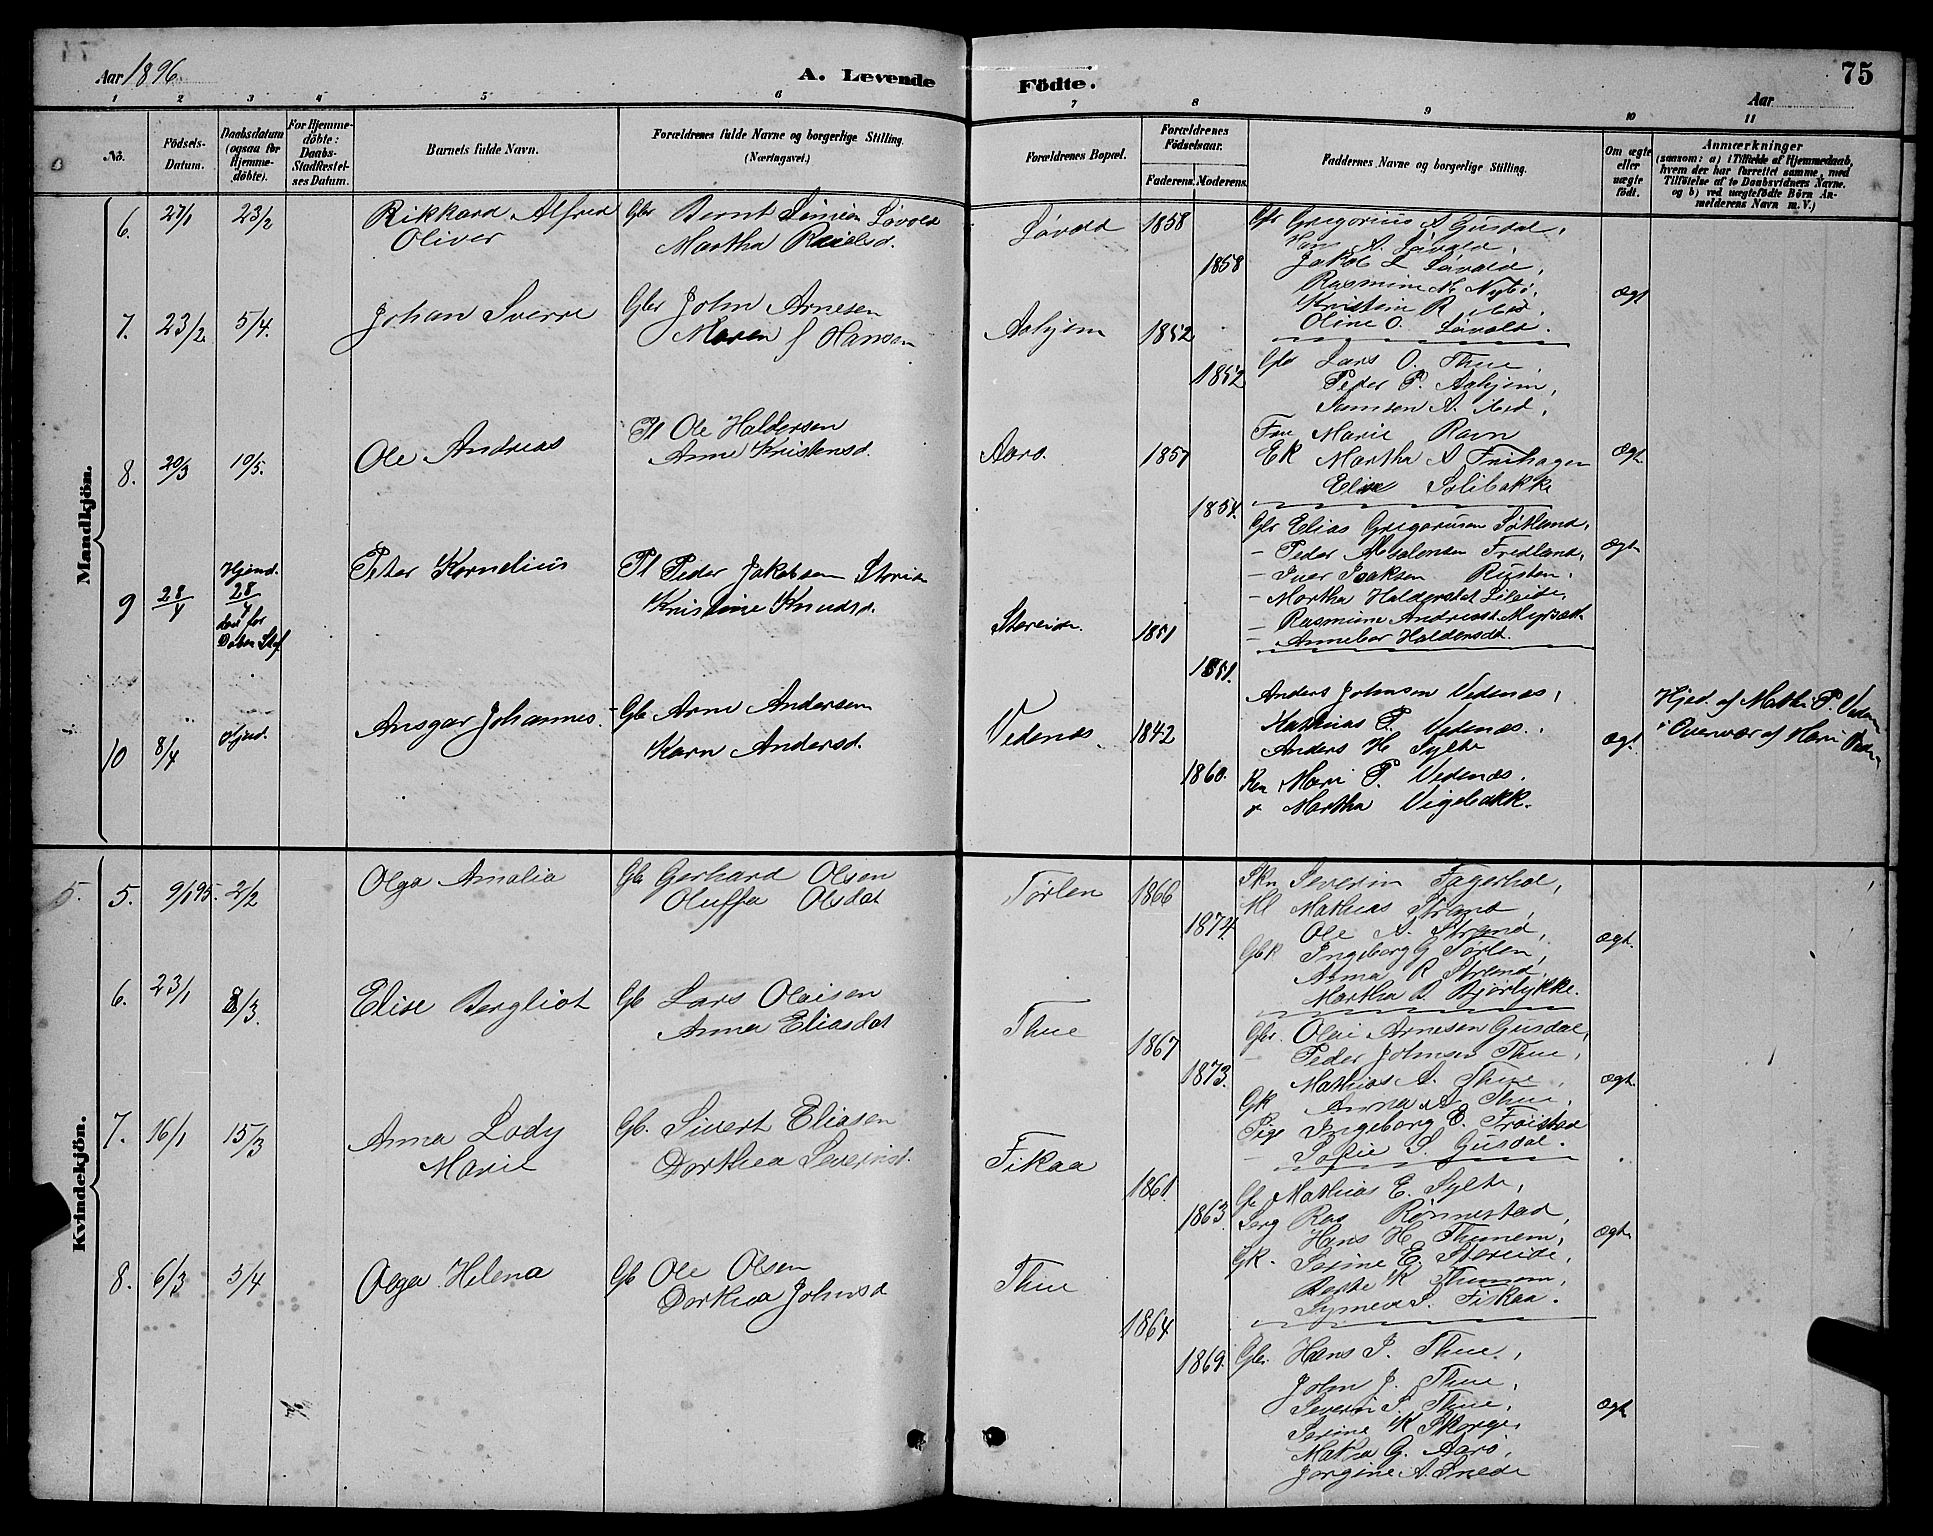 Aar 1896.
A. Levende
Födte.
75
Aar
1 2 3 4 5 6 7 8 9 10 11
No.
Födsels-
Datum.
Daabsdatum
(ogsaa for
Hjemme-
döbte).
For Hjemme-
döbte:
Daabs-
Stadfæstel-
ses Datum.
Barnets fulde Navn.
Forældrenes fulde Navne og borgerlige Stilling.
(Næringsvei.)
Forældrenes Bopæl.
Forældrenes
Födselsaar.
Faderens. Moderens.
Faddernes Navne og borgerlige Stilling.
Om ægte
eller
uægte
födt.
Anmærkninger
(saasom: a) i Tilfælde af Hjemmedaab,
hvem der har forrettet samme, med
Tilföielse af to Daabsvidners Navne.
og b) ved uægtefödte Börn An-
melderens Navn m. V.)
Mandkjön.
6. 27/1 23/2 Rikkard Alfred Gbr Bernt Løvold
Oliver Martha
Løvold 1858
1858
Gbr Gregorius A Gusdal,
Hans A. Løvold,
Jakob L Løvold,
Rasmine M. Nybø,
Kristine R ibid,
Oline O. Løvold.
Ægt
7. 23/2 5/4. Johan Sverre Gbr John Arnesen
Maren J Hansen
Aahjem 1852
1852
Gbr Lars O. Thue,
Peder P. Aahjem,
Samson A. ibid,
Fru Marie Ravn
EK Martha A Frihagen
Elise Solibakke
Ægt
8. 20/3 10/5. Ole Andreas Pl Ole Haldorsen
Anne Kristensd.
Aarø. 1857
1854.
Gbr Elias Gregoriusen Sørland,
- Peder Absalonsen Fredland,
- Iver Isaksen Rusten.
- Martha Haldorsdt Lileide,
- Rasmine Andreasdt Myrsæt
- Annebor Haldorsdt.
Ægt
9 28/4 Hjemd.
28/4
død før
Daaben Stf
Peter Kornelius Pl Peder Jakobsen Storeide
Kristine Knudsd.
Storeide. 1851
1851.
10 8/4 Hjemd. Ansgar Johannes. Gbr Arne Andersen
Karn Andersd.
Vedenæs. 1842
1860.
Anders Johnsen Vedenæs,
Mathias P. Vedenæs.
Anders H. Sylte
Kon Mari P. Vedenæs.
Martha Vigebakk.
Ægt.
Hjed. af Math. P. Veden
i Overvær af Hari
Kvindekjön.
5. 5. 9/1 95. 2/2 Olga Amalia Gb Gerhard Olsen
Oluffa Olsdat
Tørlen 1866
1874.
Skn Severin Fagerhol,
Kl Mathias Strand,
Ole A. Strand,
Gbk Ingeborg G Tørlen,
Anna R Strand,
Martha B. Bjørlykke.
Ægt.
6. 23/1 8/3. Elise Bergliot Gb Lars Olaisen
Anna Eliasdat
Thue 1867
1873.
Gbr. Olai Arnesen Gusdal,
Peder Johnsen Thue,
Mathias A. Thue,
Gk Anna A. Thue,
Pige Ingeborg E. Frøistad
- Sofie S. Gusdal.
Ægt.
7. 16/1 15/3 Anna Lody Gb. Sivert Eliasen
Marie Dorthea Severinsd.
Fikaa 1861.
1863.
Gb Mathias E. Sylte,
Serg Ras Rønnestad,
Hans H. Thunem,
Gk. Serine E. Storeide,
Berte K Thunem,
Synneva S. Fiskaa.
Ægt.
8. 6/3 5/4 Olga Helena Gb Ole Olsen
Dorthea Johnsd
Thue 1864
1869.
Gbr. Hans J. Thue,
John J. Thue,
Severin S. Thue,
Serine K Skorge,
Mathea G. Aarø,
Jørgine A. Snede
Ægt